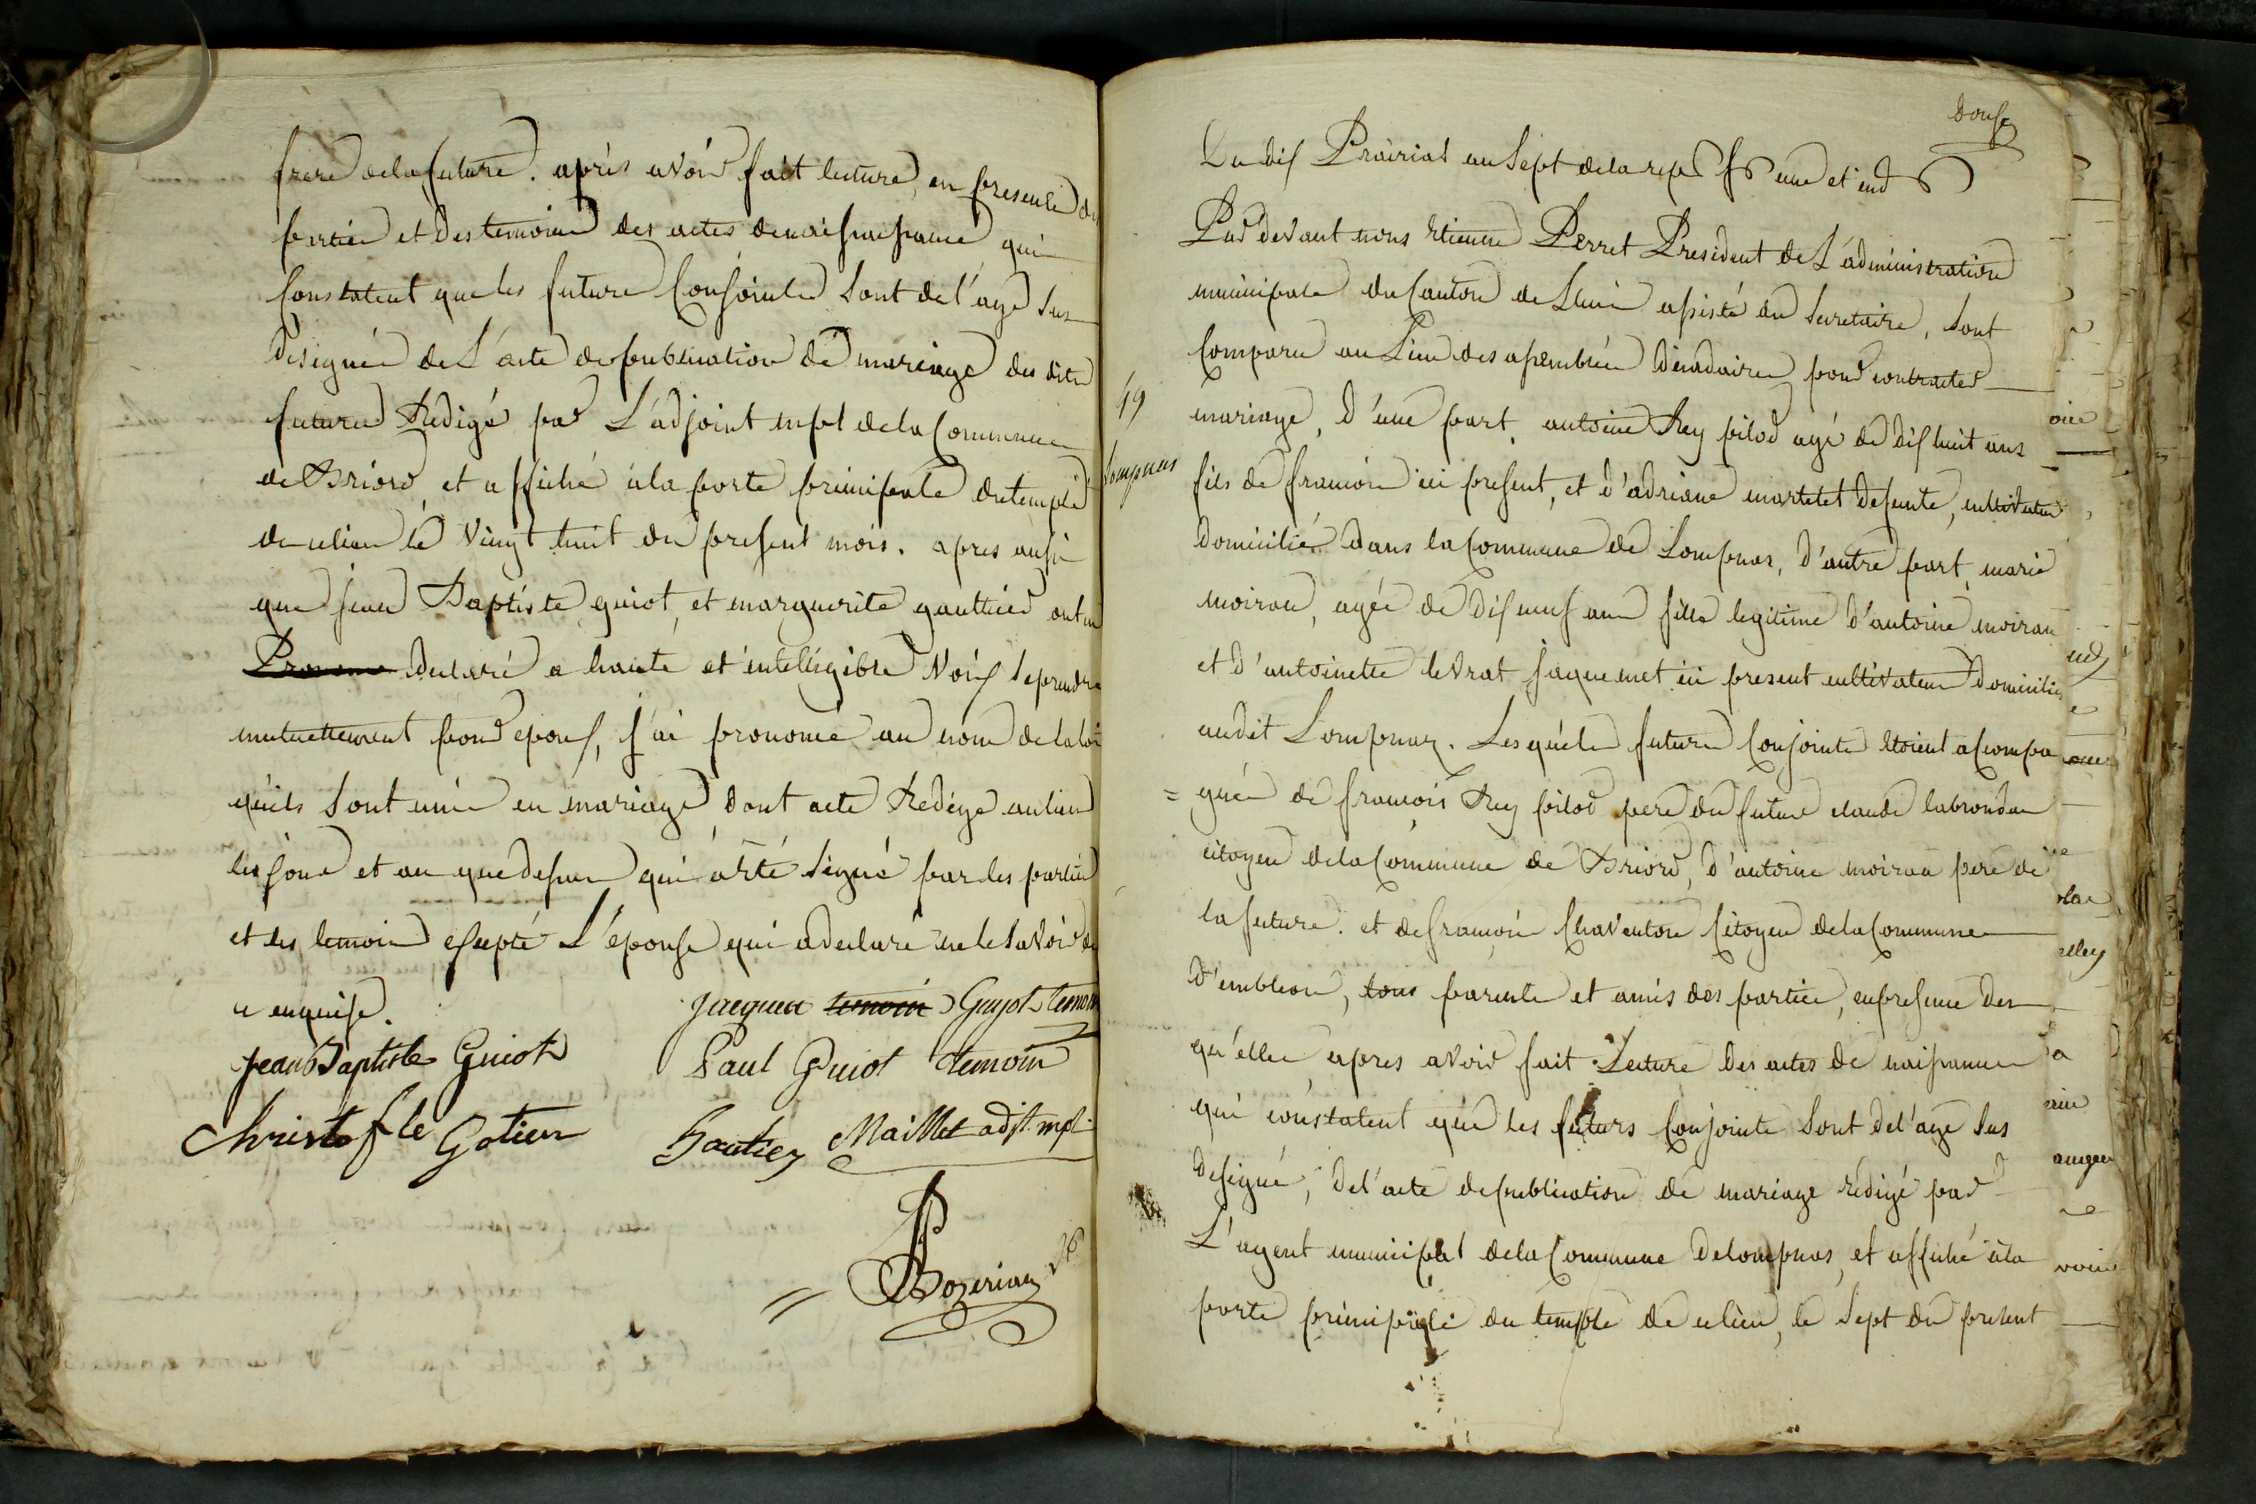 frere dela future. après avoir fait lecture, en presence des
parties et des temoins des actes de naissance qui
constatent que les futurs Conjoints sont de l'age sus
designée de L'acte de publication de mariage des dits
futures Redigé par L'adjoint mpl dela Commune
de Briord, et affiché à la porte principale du temple
de ce lieu le vingt huit du present mois. apres aussi
que jean Baptiste guiot, et marguerite gauthier ont eu
Prononcé declaré a haute et intelligible Voix se prendre
mutuellement pour epoux, j'ai prononcé au nom de la loi
qu'ils sont unis en mariage dont acte Redigé au lieu
les jour et an que dessus qui a été signé par les parties
et les temoins excepté L'épouse qui a declaré ne le savoir de
ce enquise.
jacques temoin Guyot temoin
jean Baptiste Guiot
Paul Guiot temoin
Christofle Gotier
Gautier
Maillet adjt. mpl.
Bozerian
douze
Du dix Prairial an Sept dela rep fr une et ind
Par devant nous Etienne Perret President de L'administration
municipale du Canton de Lhuis assisté du Secretaire, sont
Comparu au Lieu des assemblées Décadaires pour contracter
49
Lompnas
mariage, d'une part, antoine Rey pilod agé de dix huit ans
fils de françois ici present, et d'adriane martelet defunte, cultivateur
domicilié dans la Commune de Lompnas, d'autre part, marie
moiroud, agée de dix neuf ans fille legitime d'antoine moiroud
et d'antoinette levrat jaquemet ici present cultivateurs domiciliés
audit Lompnaz. Les quels futurs Conjoints étoient acompa
= gnés de françois Rey pilod pere du future claude
citoyen dela Commune de Briord, d'antoine moiroud pere de
la future. et de françois Chaventon Citoyen dela Commune
d'embleon, tous parents et amis des parties, en presence des
qu'elles apres avoir fait Lecture des actes de naissance
qui constatent que les futurs Conjoints sont de l'age sus
designé, de l'acte de publication de mariage rédigé par
L'agent municipal dela Commune de lompnas, et affiché à la
porte principale du temple de ce lieu, le sept du present